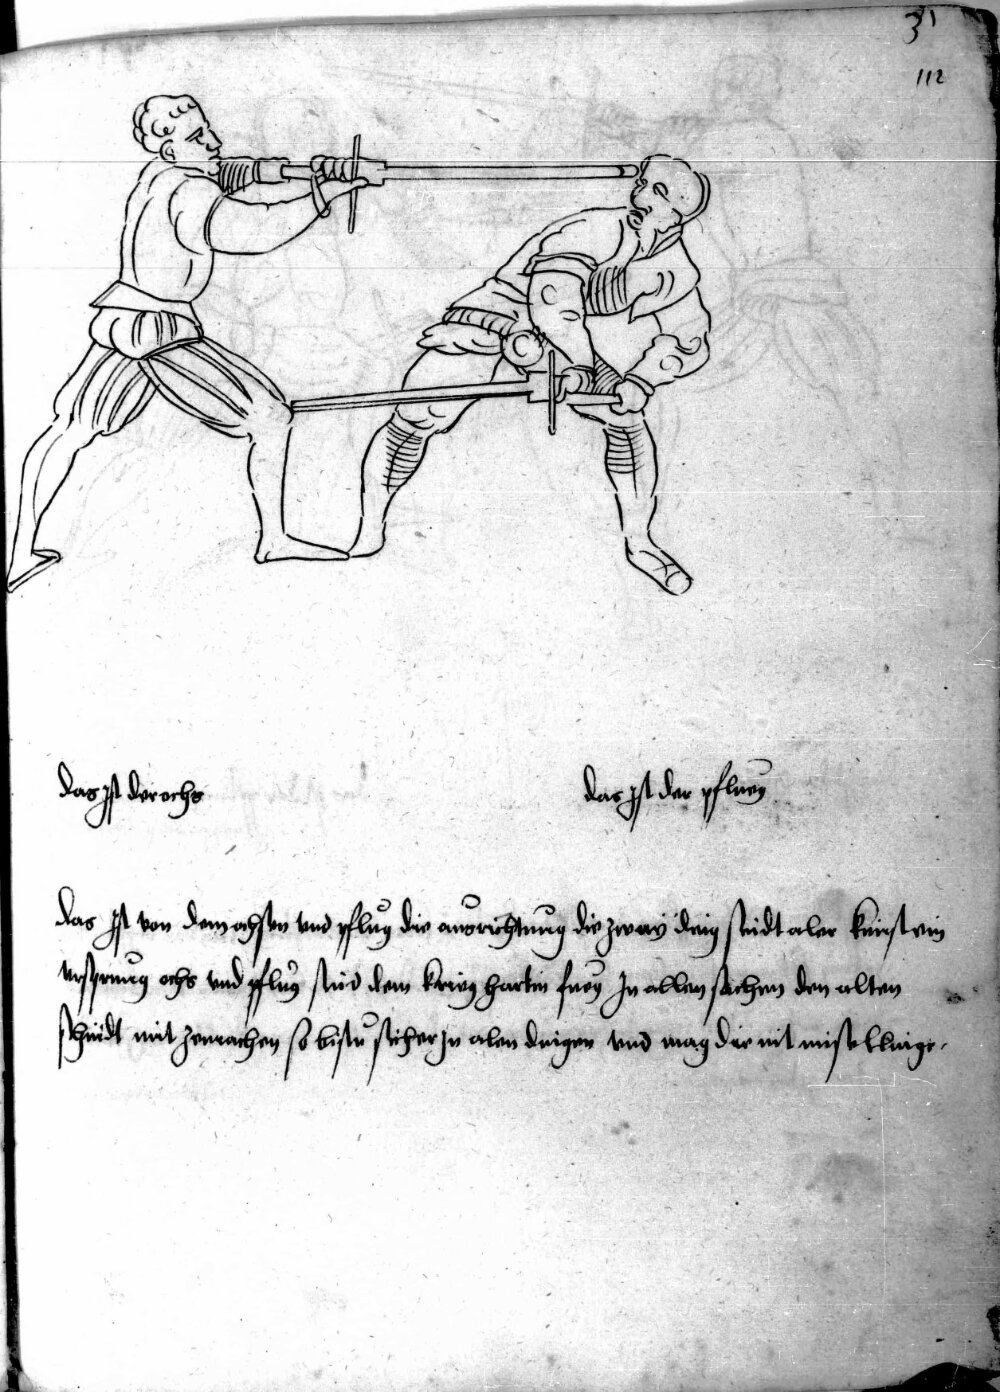 31
112
das jst der ochs
das jst der pflueg
das jst von dem ochsen vnd pflug die ausrichtung die zway ding sindt aler kunst ein
vrsprung ochs vnd pflug sind dem krieg hart in fueg Jn allen sachen den alten
schnidt mit zemachen so bistu sicher jn alen dingen vnd mag dir nit